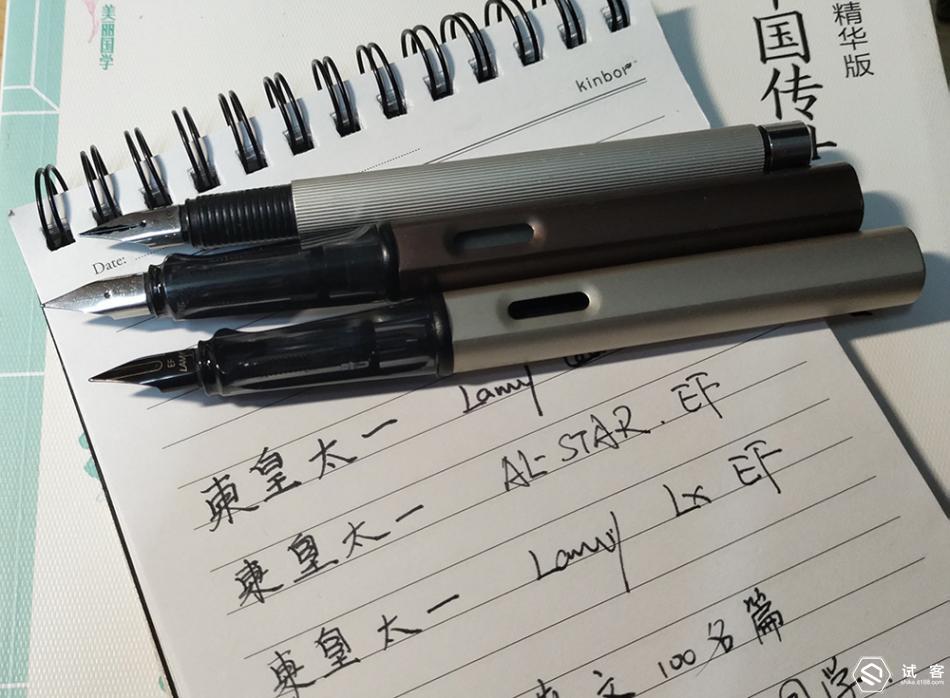 美丽国学
中国传
精华版
kinbor
Date:
EF
LAMY
東皇太一 Lamy
東皇太一 AL-STAR. EF
東皇太一 Lamy Lx EF
文100名篇
试客
shike.it168.com